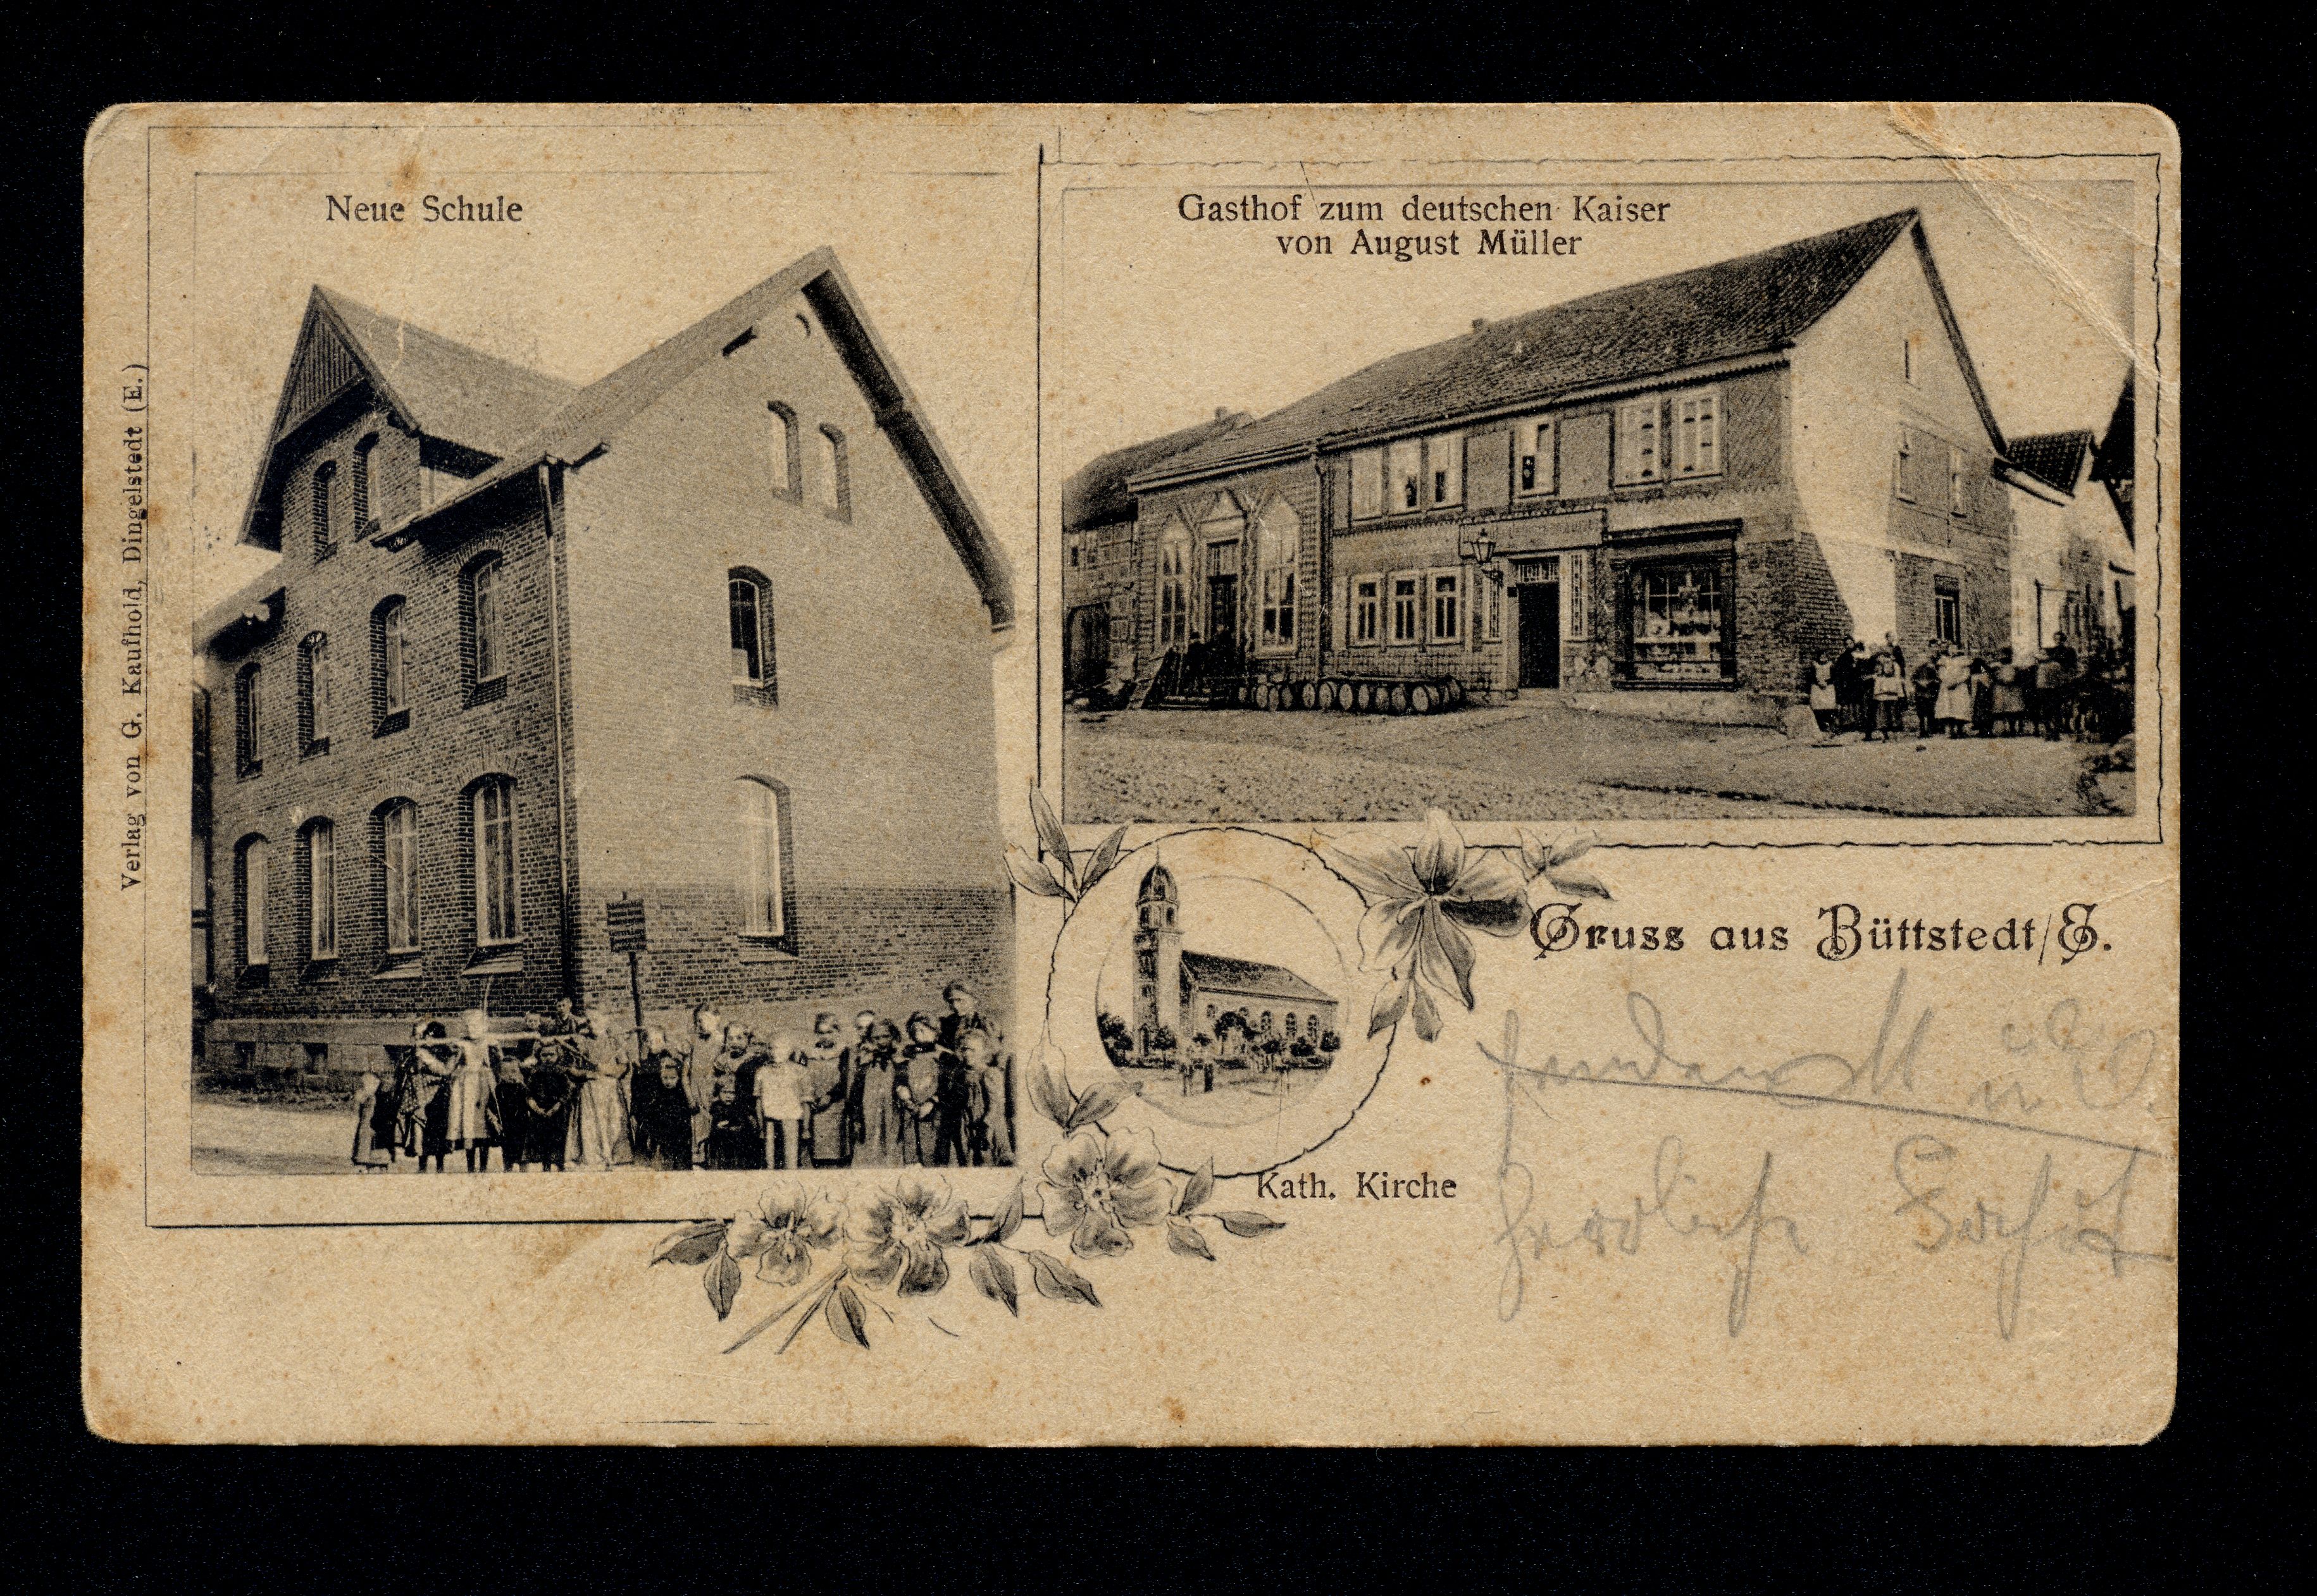 Neue Schule
Gasthof zum deutschen Kaiser
von August Müller
Verlag von G. Kaufhold, Dingelstedt (E.)
Gruss aus Büttstedt/E.
Kath. Kirche